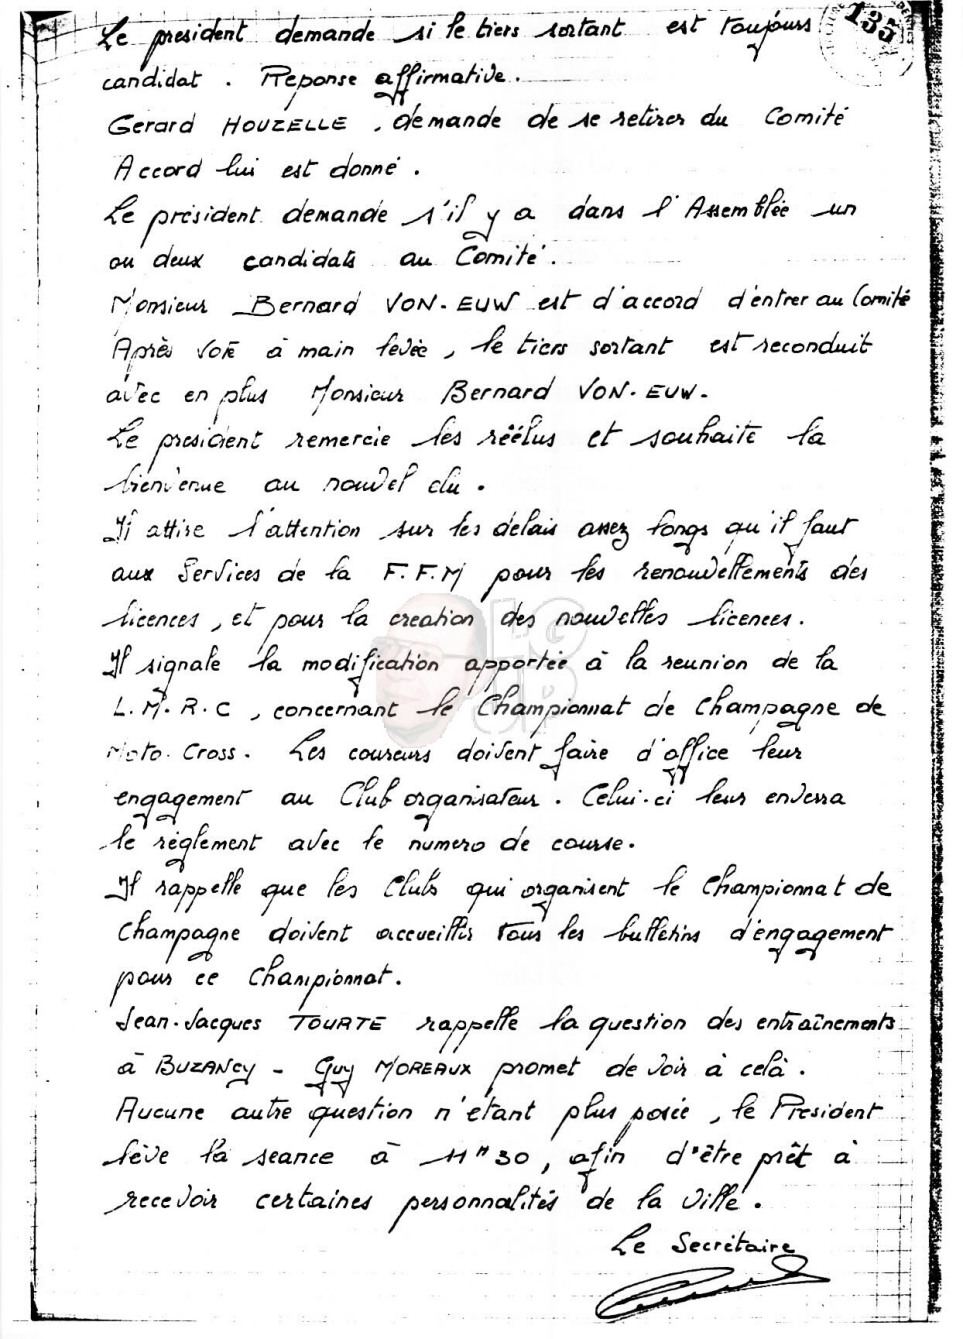 135
Le president demande si le tiers sortant est toujours
candidat. Reponse affirmative.
Gerard HOUZELLE, demande de se retirer du Comité
Accord lui est donné.
Le président demande s'il y a dans l'Assemblée un
ou deux candidats au Comité.
Monsieur Bernard VON-EUW est d'accord d'entrer au Comité
Après vote à main levée, le tiers sortant est reconduit
avec en plus Monsieur Bernard VON-EUW.
Le president remercie les réélus et souhaite la
bienvenue au nouvel élu.
Il attire l'attention sur les délais assez longs qu'il faut
aux Services de la F.F.M pour les renouvellements des
licences, et pour la creation des nouvelles licences.
Il signale la modification apportée à la reunion de la
L.M.R.C, concernant le Championnat de Champagne de
Moto-Cross. Les coureurs doivent faire d'office leur
engagement au Club organisateur. Celui-ci leur enverra
le règlement avec le numero de course.
Il rappelle que les Clubs qui organisent le Championnat de
Champagne doivent accueillir tous les bulletins d'engagement
pour ce Championnat.
Jean-Jacques TOURTE rappelle la question des entraînements
à BUZANCY - Guy MOREAUX promet de voir à celà.
Aucune autre question n'étant plus posée, le President
lève la seance à 11H30, afin d'être prêt à
recevoir certaines personnalités de la ville.
Le Secrétaire